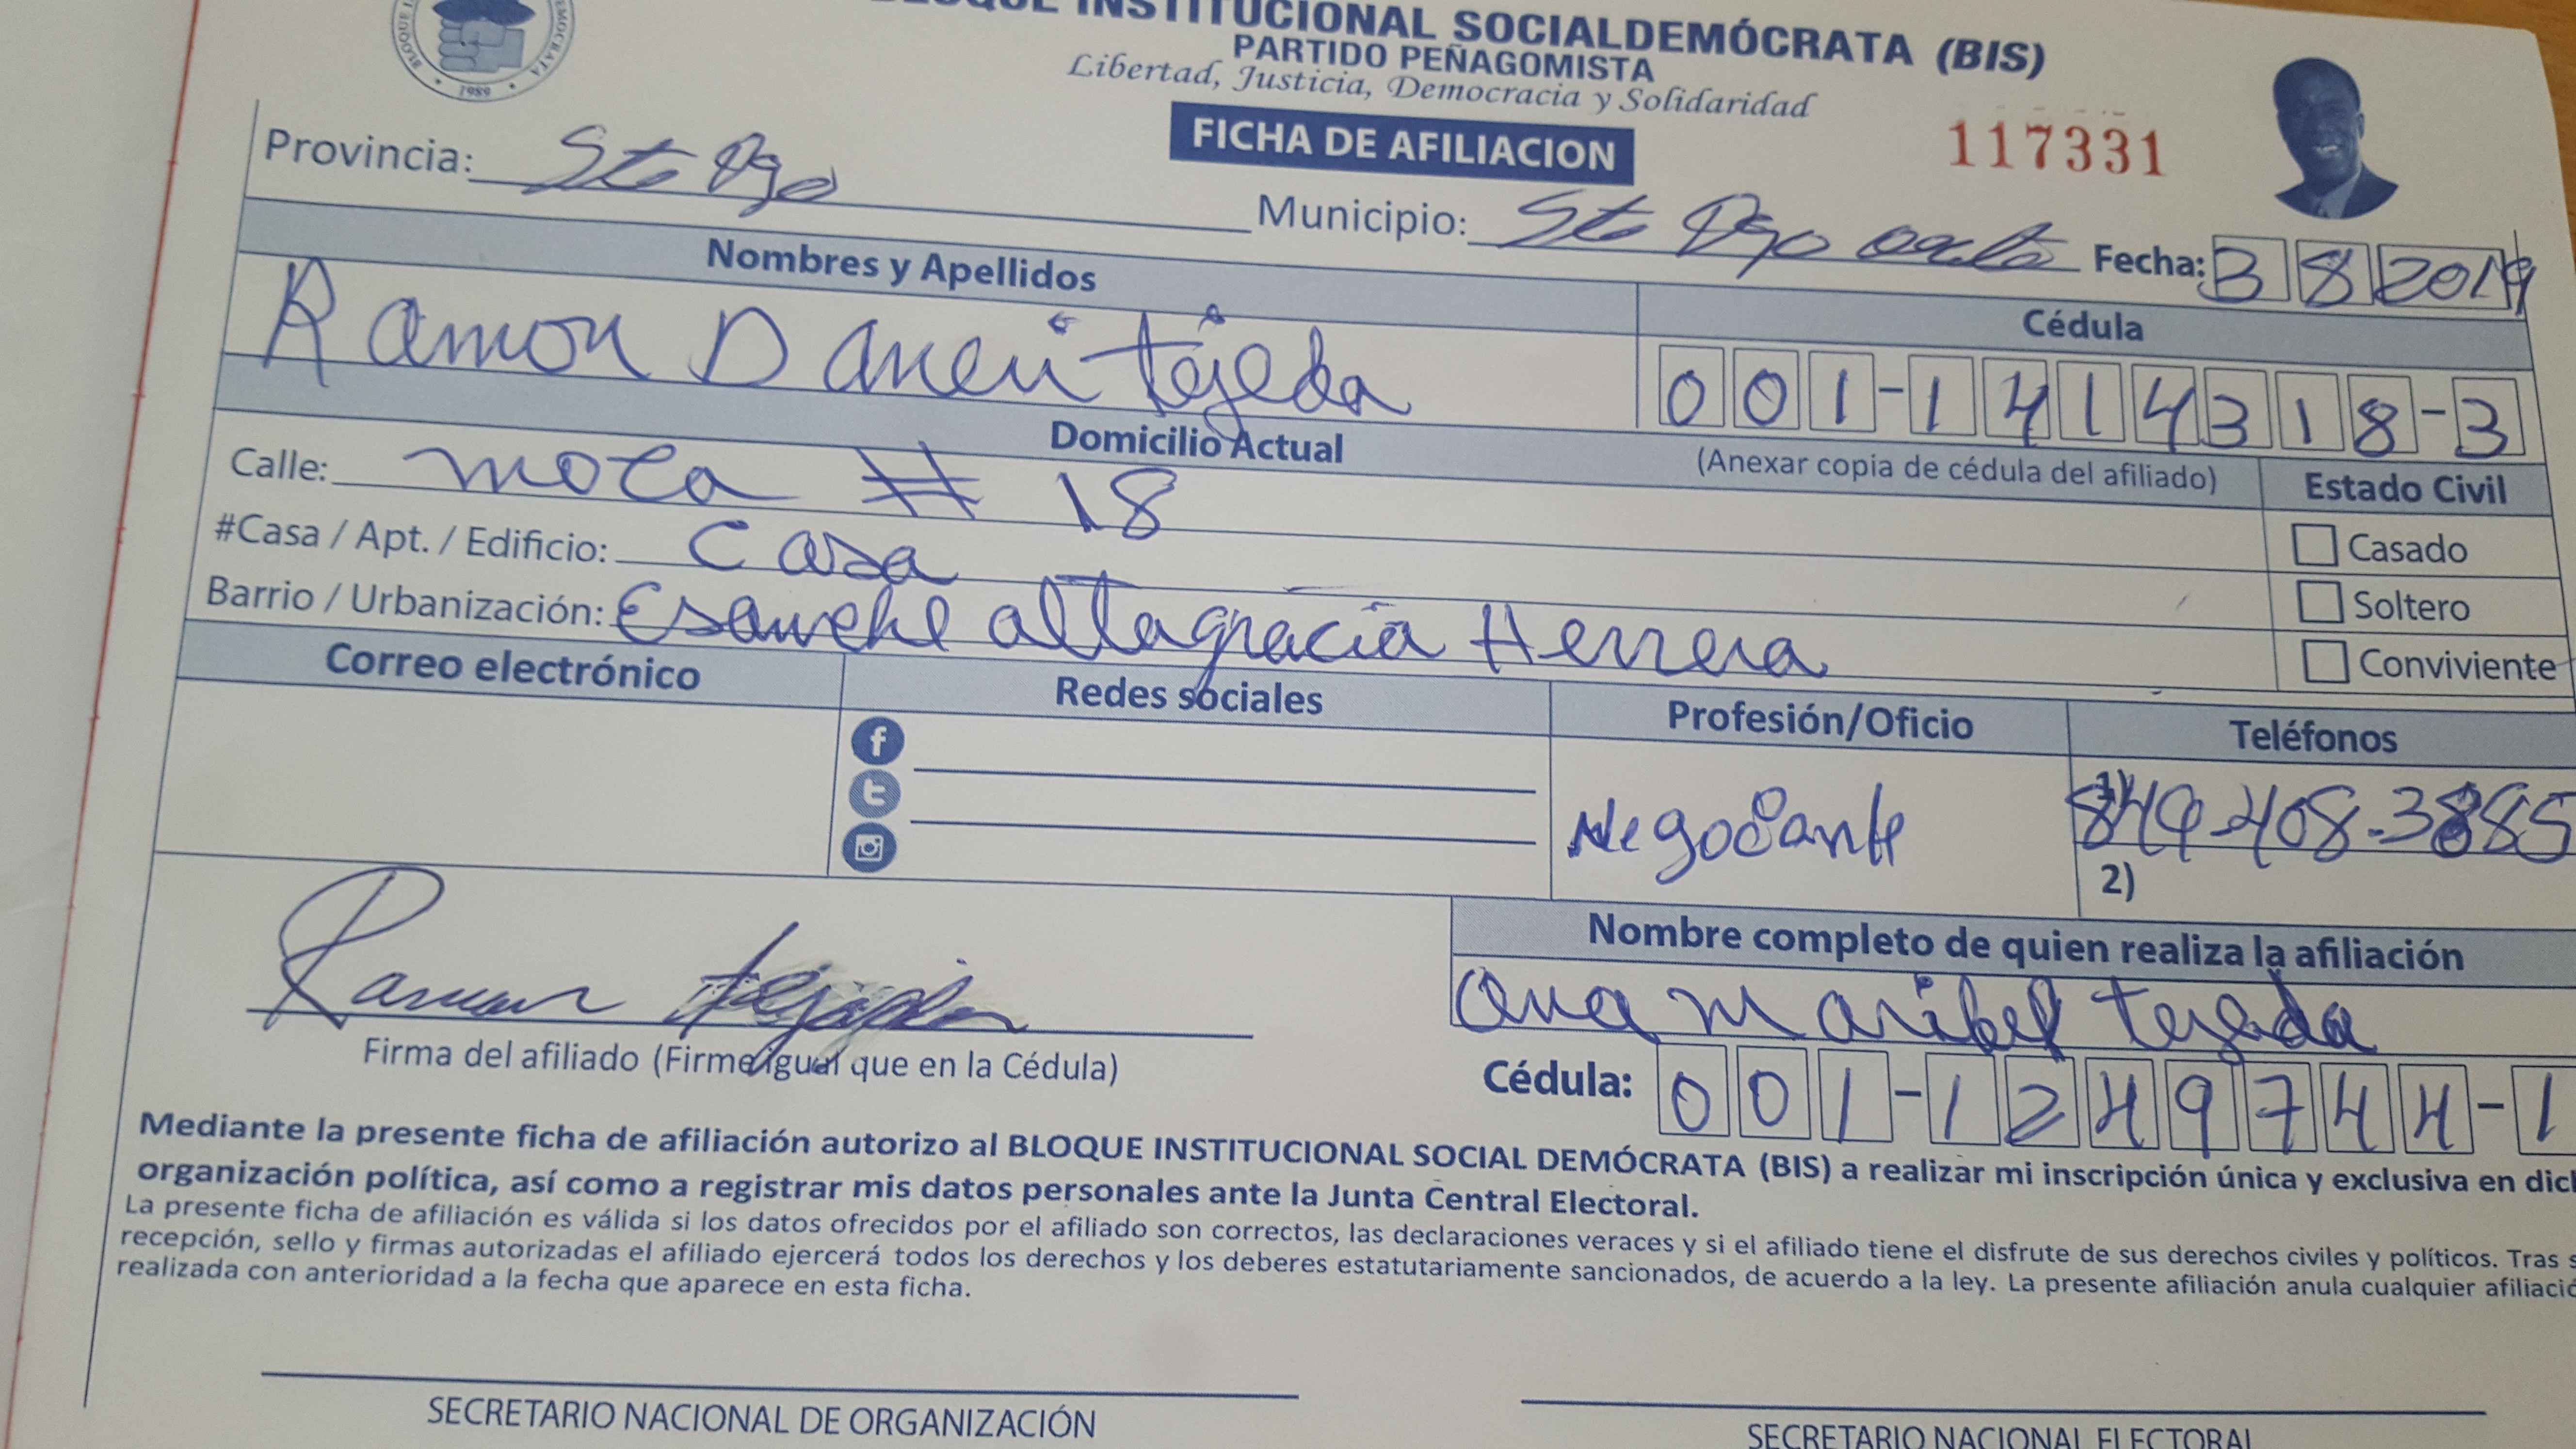 BLOQUE INSTITUCIONAL SOCIALDEMÓCRATA (BIS)
PARTIDO PEÑAGOMISTA
Libertad, Justicia, Democracia y Solidaridad
1989
FICHA DE AFILIACION
117331
Provincia: Sto Dgo
Municipio: Sto Dgo oeste Fecha: 3 8 2019
Nombres y Apellidos
Cédula
Ramon Daneri tejeda
001-1414318-3
Domicilio Actual
(Anexar copia de cédula del afiliado)
Estado Civil
Calle: moca # 18
Casado
#Casa / Apt. / Edificio: Casa
Soltero
Barrio / Urbanización: altagracia Herrera
Conviviente
Correo electrónico
Redes sociales
Profesión/Oficio
Teléfonos
Negociante
1) 849-408-3885
2)
Ramon tejeda
Firma del afiliado (Firme igual que en la Cédula)
Nombre completo de quien realiza la afiliación
ana Maribel tejada
Cédula: 001-1249744-1
Mediante la presente ficha de afiliación autorizo al BLOQUE INSTITUCIONAL SOCIAL DEMÓCRATA (BIS) a realizar mi inscripción única y exclusiva en dich
organización política, así como a registrar mis datos personales ante la Junta Central Electoral.
La presente ficha de afiliación es válida si los datos ofrecidos por el afiliado son correctos, las declaraciones veraces y si el afiliado tiene el disfrute de sus derechos civiles y políticos. Tras s
recepción, sello y firmas autorizadas el afiliado ejercerá todos los derechos y los deberes estatutariamente sancionados, de acuerdo a la ley. La presente afiliación anula cualquier afiliació
realizada con anterioridad a la fecha que aparece en esta ficha.
SECRETARIO NACIONAL DE ORGANIZACIÓN
SECRETARIO NACIONAL ELECTORAL